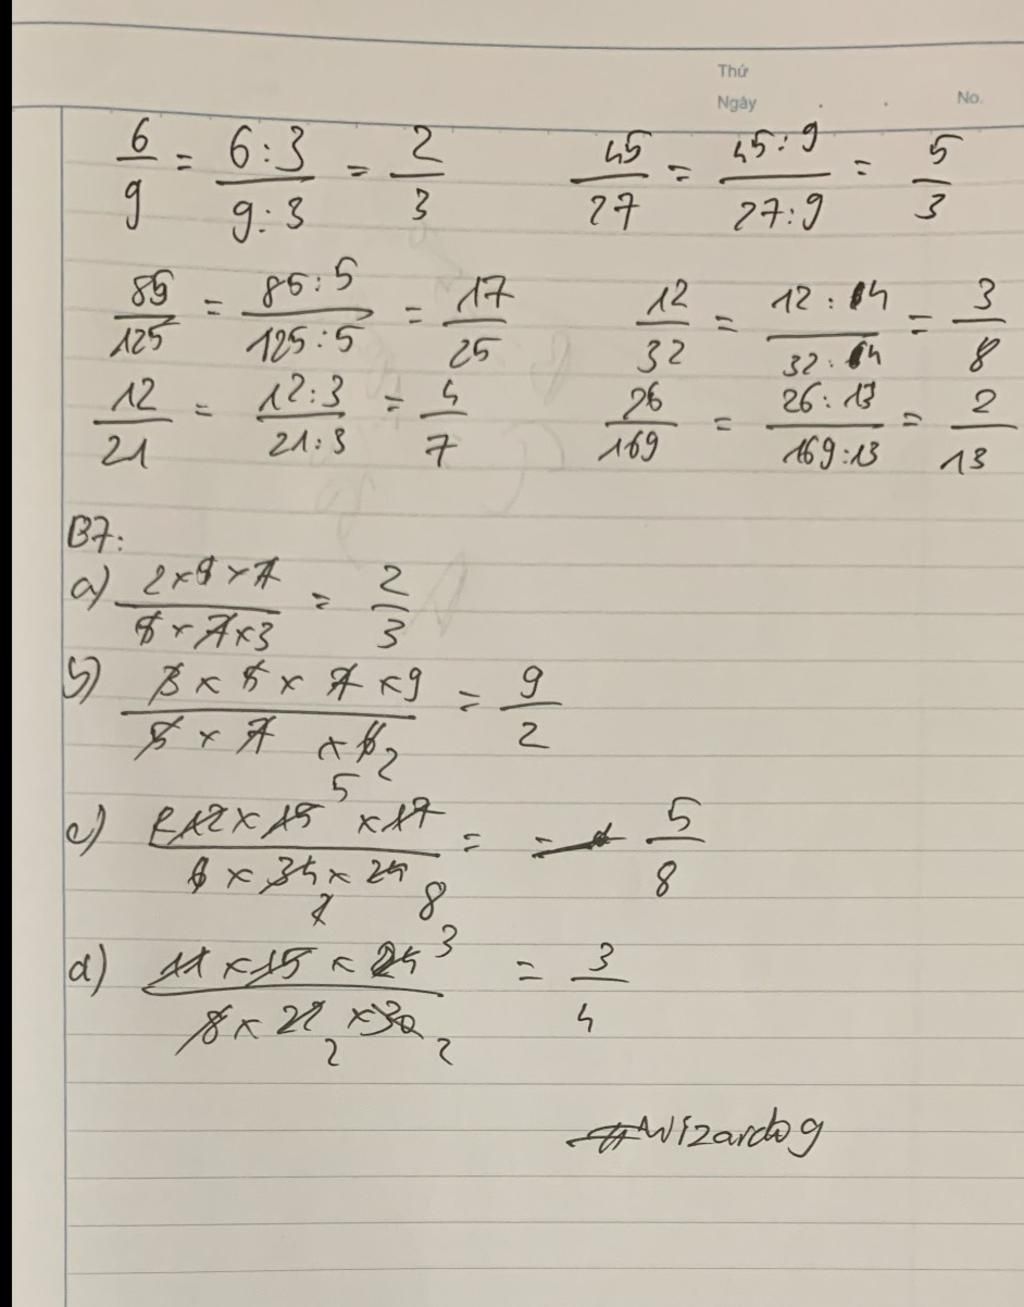 Thứ
Ngày . . No.
6/9 = 6:3/9:3 = 2/3    45/27 = 45:9/27:9 = 5/3
85/125 = 85:5/125:5 = 17/25    12/32 = 12:4/32:4 = 3/8
12/21 = 12:3/21:3 = 4/7    26/169 = 26:13/169:13 = 2/13
B7:
a) 2×9×7/9×7×3 = 2/3
b) 3×5×7×9/5×7×6 2 = 9/2
c) 2 12×15 5 ×17/6×34×24 2 8 = = 5/8
d) 11×15×24 3/8×22 2 ×30 2 = 3/4
#Wizardo9